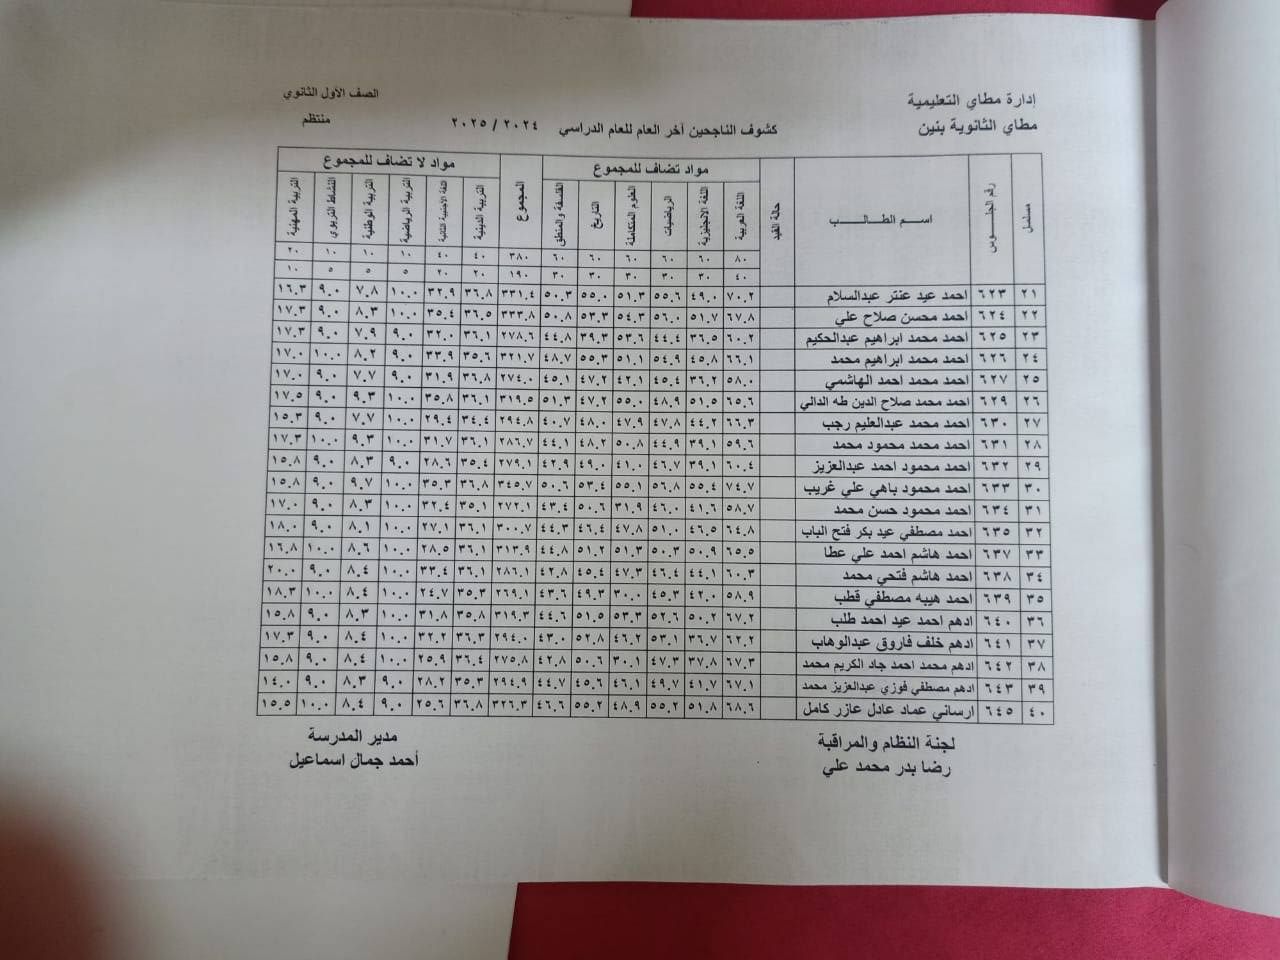 إدارة مطاي التعليمية
مطاي الثانوية بنين
كشوف الناجحين آخر العام للعام الدراسي ٢٠٢٤ / ٢٠٢٥
الصف الأول الثانوي
منتظم
مسلسل رقم الجلـــوس اســم الطـالــــب حالة القيد مواد تضاف للمجموع المجموع مواد لا تضاف للمجموع
اللغة العربية اللغة الانجليزية الرياضيات العلوم المتكاملة التاريخ الفلسفة والمنطق التربية الدينية اللغة الاجنبية الثانية التربية الرياضية التربية الوطنية النشاط التربوي التربية المهنية
٨٠ ٦٠ ٦٠ ٦٠ ٦٠ ٦٠ ٣٨٠ ٤٠ ٤٠ ١٠ ١٠ ١٠ ٢٠
٤٠ ٣٠ ٣٠ ٣٠ ٣٠ ٣٠ ١٩٠ ٢٠ ٢٠ ٥ ٥ ٥ ١٠
٢١ ٦٢٣ احمد عيد عنتر عبدالسلام ٧٠.٢ ٤٩.٠ ٥٥.٦ ٥١.٣ ٥٥.٠ ٥٠.٣ ٣٣١.٤ ٣٦.٨ ٣٢.٩ ١٠.٠ ٧.٨ ٩.٠ ١٦.٣
٢٢ ٦٢٤ احمد محسن صلاح علي ٦٧.٨ ٥١.٧ ٥٦.٠ ٥٤.٣ ٥٣.٣ ٥٠.٨ ٣٣٣.٨ ٣٦.٥ ٣٥.٤ ١٠.٠ ٨.٣ ٩.٠ ١٧.٣
٢٣ ٦٢٥ احمد محمد ابراهيم عبدالحكيم ٦٠.٢ ٣٦.٥ ٤٤.٤ ٥٣.٦ ٣٩.٣ ٤٤.٨ ٢٧٨.٦ ٣٦.١ ٣٢.٠ ٩.٠ ٧.٩ ٩.٠ ١٧.٣
٢٤ ٦٢٦ احمد محمد ابراهيم محمد ٦٦.١ ٤٥.٨ ٥٤.٩ ٥١.١ ٥٥.٣ ٤٨.٧ ٣٢١.٧ ٣٥.٦ ٣٣.٩ ٩.٠ ٨.٢ ١٠.٠ ١٧.٠
٢٥ ٦٢٧ احمد محمد احمد الهاشمي ٥٨.٠ ٣٦.٢ ٤٥.٤ ٤٢.١ ٤٧.٢ ٤٥.١ ٢٧٤.٠ ٣٦.٨ ٣١.٩ ٩.٠ ٧.٧ ٩.٠ ١٧.٠
٢٦ ٦٢٩ احمد محمد صلاح الدين طه الدالي ٦٥.٦ ٥١.٥ ٤٨.٩ ٥٥.٠ ٤٧.٢ ٥١.٣ ٣١٩.٥ ٣٦.١ ٣٥.٨ ١٠.٠ ٩.٣ ٩.٠ ١٧.٥
٢٧ ٦٣٠ احمد محمد عبدالعليم رجب ٦٦.٣ ٤٤.٢ ٤٧.٨ ٤٧.٩ ٤٨.٠ ٤٠.٧ ٢٩٤.٨ ٣٤.٤ ٢٩.٤ ١٠.٠ ٧.٧ ٩.٠ ١٥.٣
٢٨ ٦٣١ احمد محمد محمود محمد ٥٩.٦ ٣٩.١ ٤٤.٩ ٥٠.٨ ٤٨.٢ ٤٤.١ ٢٨٦.٧ ٣٦.١ ٣١.٧ ١٠.٠ ٩.٣ ١٠.٠ ١٧.٣
٢٩ ٦٣٢ احمد محمود احمد عبدالعزيز ٦٠.٤ ٣٩.١ ٤٦.٧ ٤١.٠ ٤٩.٠ ٤٢.٩ ٢٧٩.١ ٣٥.٤ ٢٨.٦ ٩.٠ ٨.٣ ٩.٠ ١٥.٨
٣٠ ٦٣٣ احمد محمود باهي علي غريب ٧٤.٧ ٥٥.٤ ٥٦.٨ ٥٥.١ ٥٣.٤ ٥٠.٦ ٣٤٥.٧ ٣٦.٨ ٣٥.٣ ١٠.٠ ٩.٧ ٩.٠ ١٥.٨
٣١ ٦٣٤ احمد محمود حسن محمد ٥٨.٧ ٤١.٦ ٤٦.٠ ٣١.٩ ٥٠.٦ ٤٣.٤ ٢٧٢.١ ٣٥.١ ٣٢.٤ ١٠.٠ ٨.٣ ٩.٠ ١٧.٠
٣٢ ٦٣٥ احمد مصطفي عيد بكر فتح الباب ٦٤.٨ ٤٦.٥ ٥١.٠ ٤٧.٨ ٤٦.٤ ٤٤.٣ ٣٠٠.٧ ٣٦.١ ٢٧.١ ١٠.٠ ٨.١ ٩.٠ ١٨.٠
٣٣ ٦٣٧ احمد هاشم احمد علي عطا ٦٥.٥ ٥٠.٩ ٥٠.٣ ٥١.٣ ٥١.٢ ٤٤.٨ ٣١٣.٩ ٣٦.١ ٢٨.٥ ١٠.٠ ٨.٦ ١٠.٠ ١٦.٨
٣٤ ٦٣٨ احمد هاشم فتحي محمد ٦٠.٣ ٤٤.١ ٤٦.٤ ٤٧.٣ ٤٥.٤ ٤٢.٨ ٢٨٦.١ ٣٦.١ ٣٣.٤ ١٠.٠ ٨.٤ ٩.٠ ٢٠.٠
٣٥ ٦٣٩ احمد هيبه مصطفي قطب ٥٨.٩ ٤٢.٠ ٤٥.٣ ٣٠.٠ ٤٩.٣ ٤٣.٦ ٢٦٩.١ ٣٥.٣ ٢٤.٧ ١٠.٠ ٨.٤ ١٠.٠ ١٨.٣
٣٦ ٦٤٠ ادهم احمد عيد احمد طلب ٦٧.٢ ٥٠.٢ ٥٢.٦ ٥٣.٣ ٥١.٥ ٤٤.٦ ٣١٩.٣ ٣٥.٨ ٣١.٨ ١٠.٠ ٨.٣ ٩.٠ ١٥.٨
٣٧ ٦٤١ ادهم خلف فاروق عبدالوهاب ٦٢.٢ ٣٦.٧ ٥٣.١ ٤٦.٢ ٥٢.٨ ٤٣.٠ ٢٩٤.٠ ٣٦.٣ ٣٢.٢ ١٠.٠ ٨.٤ ٩.٠ ١٧.٣
٣٨ ٦٤٢ ادهم محمد احمد جاد الكريم محمد ٦٧.٣ ٣٧.٨ ٤٧.٣ ٣٠.١ ٥٠.٦ ٤٢.٨ ٢٧٥.٨ ٣٦.٤ ٢٥.٩ ١٠.٠ ٨.٤ ٩.٠ ١٥.٨
٣٩ ٦٤٣ ادهم مصطفي فوزي عبدالعزيز محمد ٦٧.١ ٤١.٧ ٤٩.٧ ٤٦.١ ٤٥.٦ ٤٤.٧ ٢٩٤.٩ ٣٥.٣ ٢٨.٢ ٩.٠ ٨.٣ ٩.٠ ١٤.٠
٤٠ ٦٤٥ ارساني عماد عادل عازر كامل ٦٨.٦ ٥١.٨ ٥٥.٢ ٤٨.٩ ٥٥.٢ ٤٦.٦ ٣٢٦.٣ ٣٦.٨ ٢٥.٦ ٩.٠ ٨.٤ ١٠.٠ ١٥.٥
لجنة النظام والمراقبة
رضا بدر محمد علي
مدير المدرسة
أحمد جمال اسماعيل